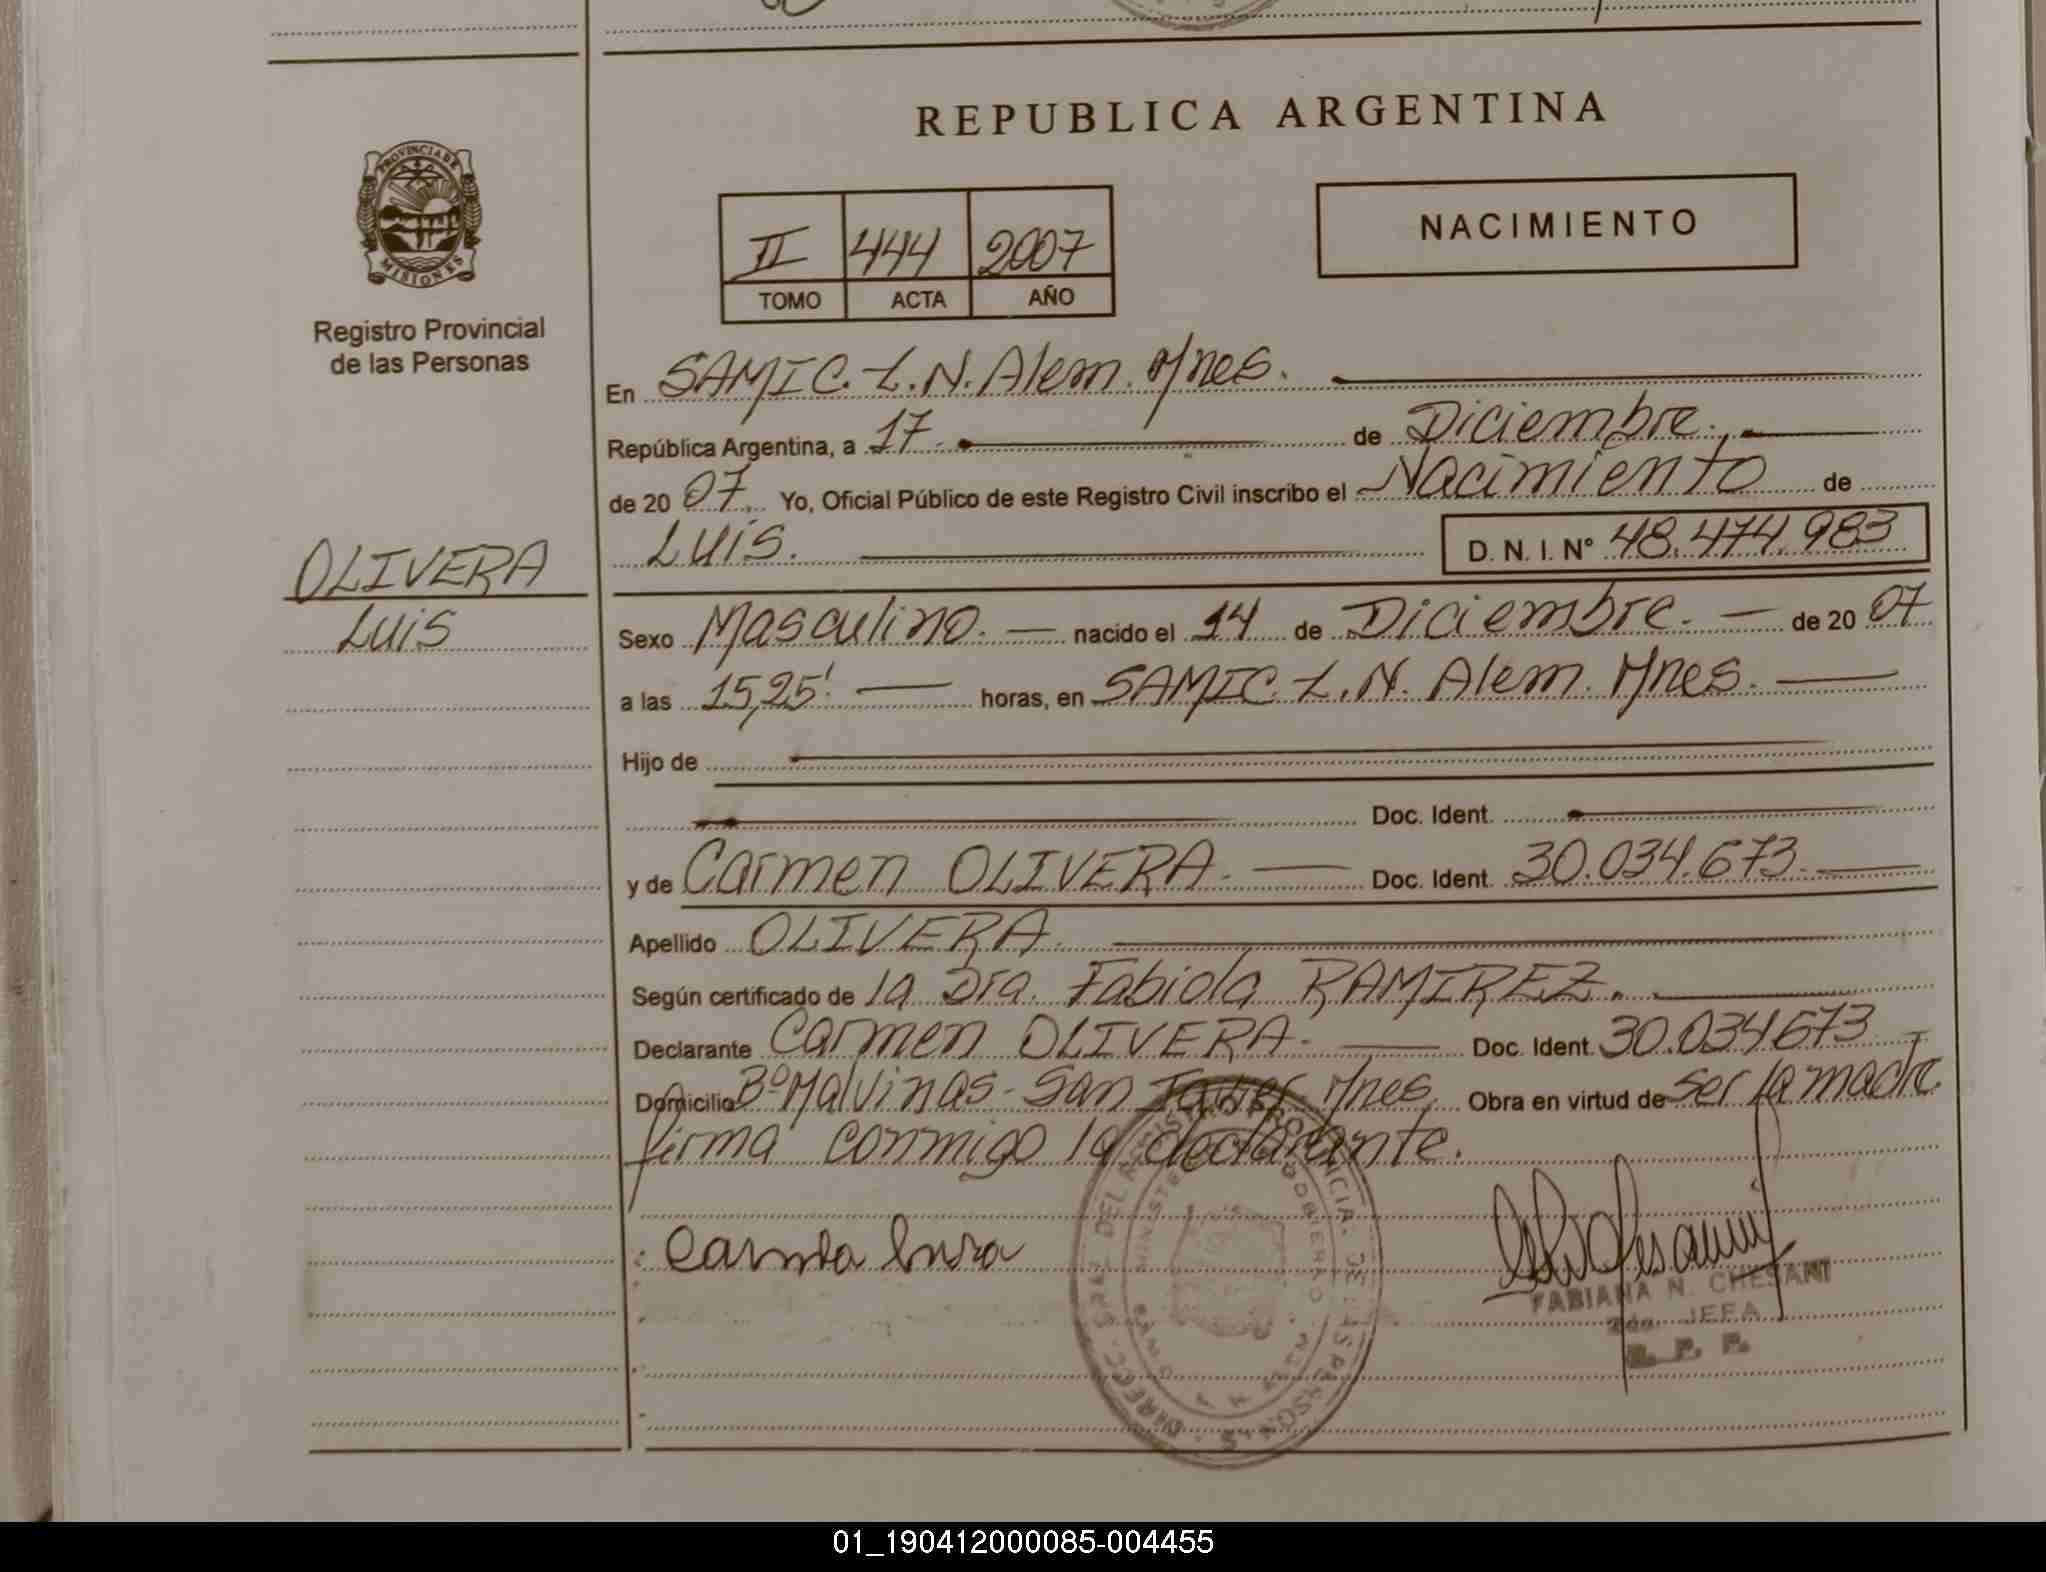 REPUBLICA ARGENTINA
PROVINCIA DE
MISIONES
Registro Provincial
de las Personas
II 444 2007
TOMO ACTA AÑO
NACIMIENTO
En SAMIC. L.N. Alem. Mnes.
República Argentina, a 17. de Diciembre.
de 20 07. Yo, Oficial Público de este Registro Civil inscribo el Nacimiento de
Luis. D. N. I. Nº 48.474.983
OLIVERA
Luis
Sexo Masculino. — nacido el 14 de Diciembre. — de 20 07
a las 15,25' — horas, en SAMIC. L.N. Alem. Mnes. —
Hijo de
Doc. Ident.
y de Carmen OLIVERA. — Doc. Ident. 30.034.673. —
Apellido OLIVERA.
Según certificado de la Dra. Fabiola RAMIREZ.
Declarante Carmen OLIVERA. — Doc. Ident. 30.034673
Domicilio Bº Malvinas - San Javier - Mnes. Obra en virtud de ser la madre
firma conmigo la declarante.
FABIANA N. CHESANI
2da. JEFA
R. P. P.
01_190412000085-004455